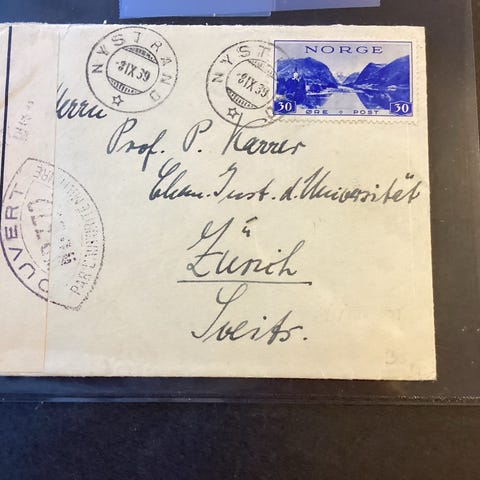 NYSTRAND
-8 IX 39
NYST
IX 39
NORGE
30 ØRE POST 30
Herrn
Prof. P. Karrer
Chem. Inst. d. Universität
Zürich
Sveits.
OUVERT
PAR L'AUTORITÉ MILITAIRE